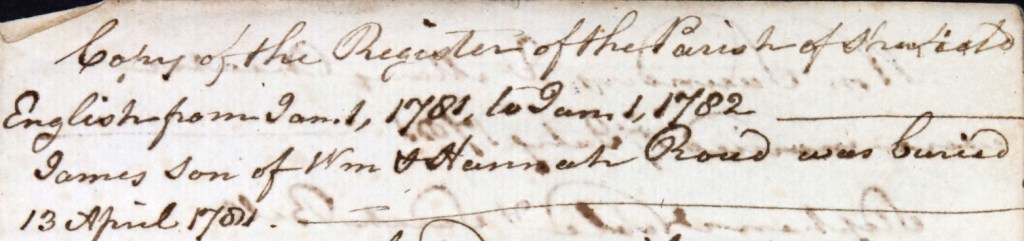 Copy of the Register of the Parish of
English from Jan. 1, 1781, to Jan. 1, 1782
James son of Wm & Hannah was buried
13 April 1781.